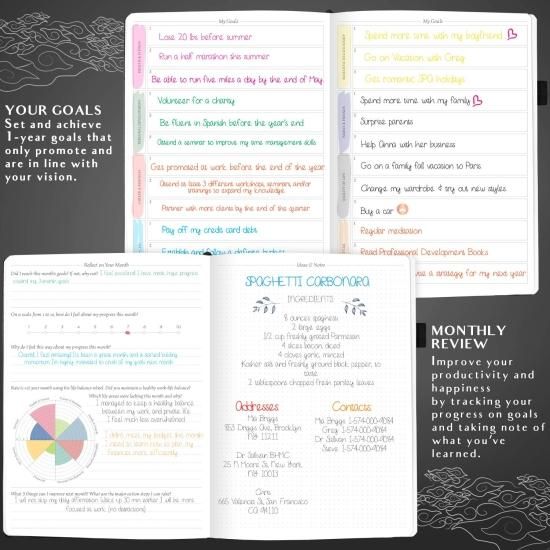 YOUR GOALS
Set and achieve
1-year goals that
only promote and
are in line with
your vision.
My Goals
Lose 20 lbs before summer
Run a half marathon this summer
Be able to run five miles a day by the end of May
Volunteer for a charity
Be fluent in Spanish before the year's end
Attend a seminar to improve my time management skills
Get promoted at work before the end of the year
Attend at least 3 different workshops, seminars, and/or
trainings to expand my knowledge
Partner with more clients by the end of the quarter
Pay off my credit card debt
Establish and follow a definite budget
My Goals
Spend more time with my boyfriend
Go on Vacation with Greg
Get romantic SPA holidays
Spend more time with my family
Surprise parents
Help Anna with her business
Go on a family fall vacation to Paris
Change my wardrobe & try out new styles
Buy a car
Regular meditation
Read Professional Development Books
use a strategy for my next year
Reflect on Your Month
Did I reach this month's goals? If not, why not? I feel excellent! I have made huge progress
toward my financial goals
On a scale from 1 to 10, how do I feel about my progress this month?
1 2 3 4 5 6 7 8 9 10
Why do I feel this way about my progress this month?
I'm highly motivated to crush all my goals next month
Which life areas were lacking this month and why?
I managed to keep a healthy balance
between my work and private life.
I feel much less overwhelmed
I didn't meet my budget this month
I need to learn how to plan my
finances more efficiently
What 3 things can I improve next month? What are the major action steps I can take?
I will not skip my daily affirmation. Wake up 30 min earlier. I will be more
focused at work (no distractions)
Ideas & Notes
SPAGHETTI CARBONARA
INGREDIENTS
8 ounces spaghetti
2 large eggs
1/2 cup freshly grated Parmesan
4 slices bacon, diced
4 cloves garlic, minced
Kosher salt and freshly ground black pepper, to
taste
2 tablespoons chopped fresh parsley leaves
Addresses
Ms. Briggs
183 Driggs Ave, Brooklyn
NY 11211
Dr. Sullivan B.H.M.C.
25 N Moore St, New York
NY 10013
Chris
665 Valencia St, San Francisco
CA 94110
Contacts
Ms. Briggs 1-574-000-9084
Greg 1-574-000-9084
Dr. Sullivan 1-574-000-9084
Steve 1-574-000-9084
MONTHLY
REVIEW
Improve your
productivity and
happiness
by tracking your
progress on goals
and taking note of
what you've
learned.